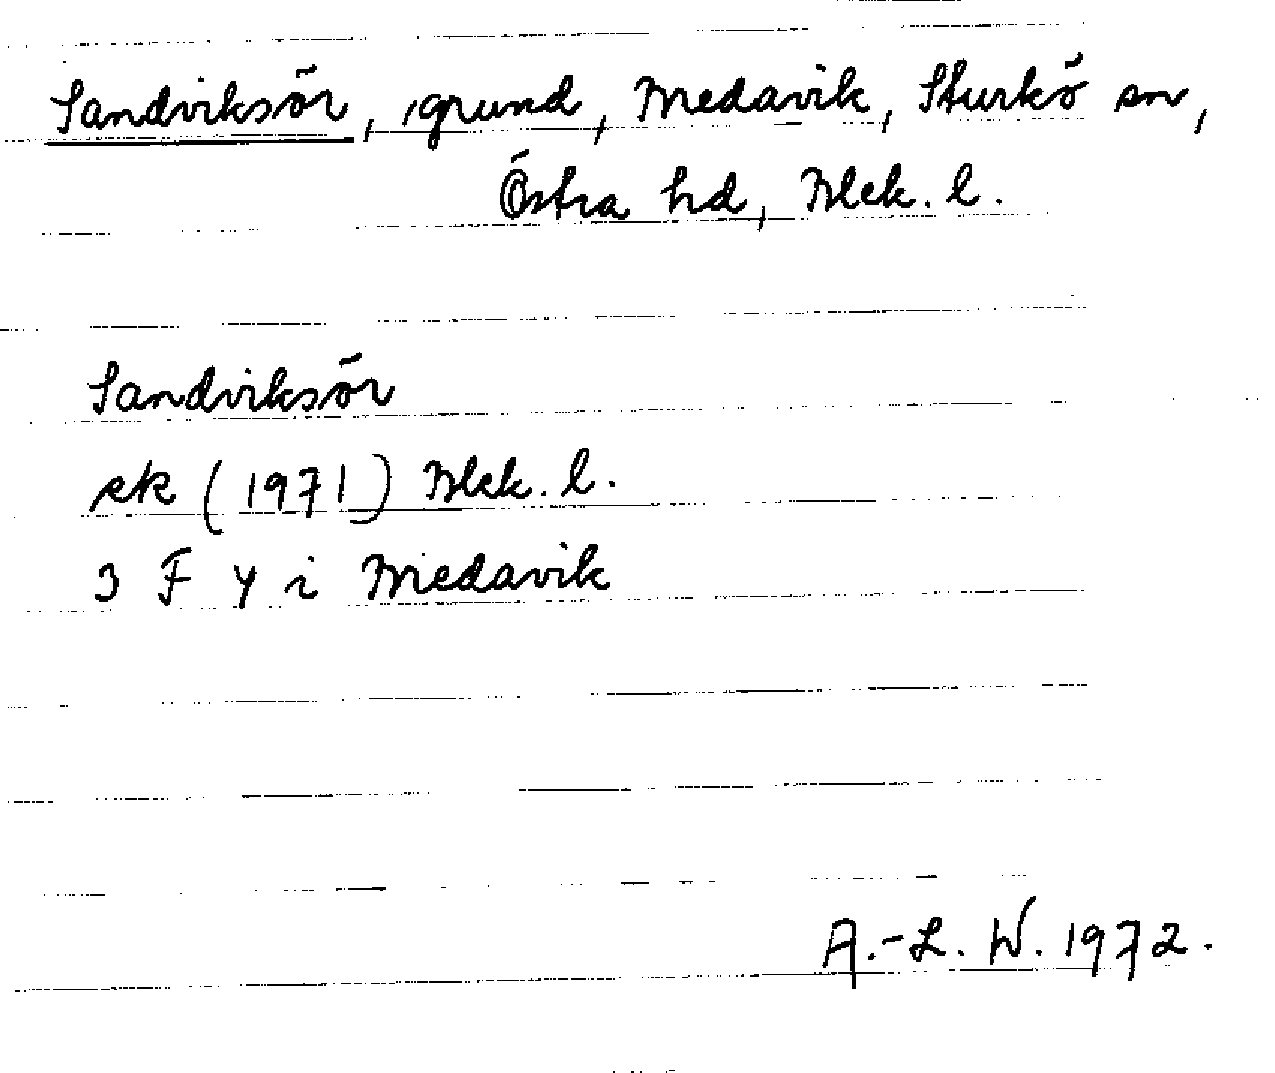 Sandviksör, grund, Medavik, Sturkö sn,
Östra hd, Blek. l.
Sandviksör
ek (1971) Blek. l.
3 F y i Medavik
A.-L. W. 1972.